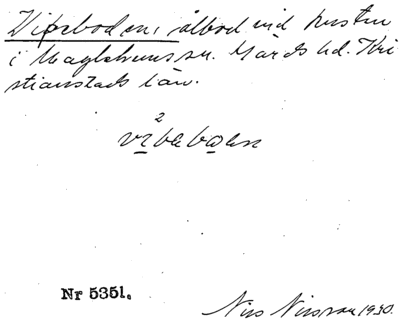 Vibeboden, ålbod vid kusten
i Maglehems sn. Gärds hd. Kri
stianstads län.
2
vibebọdɛn
Nr 5351.
Nils Nilsson 1930.